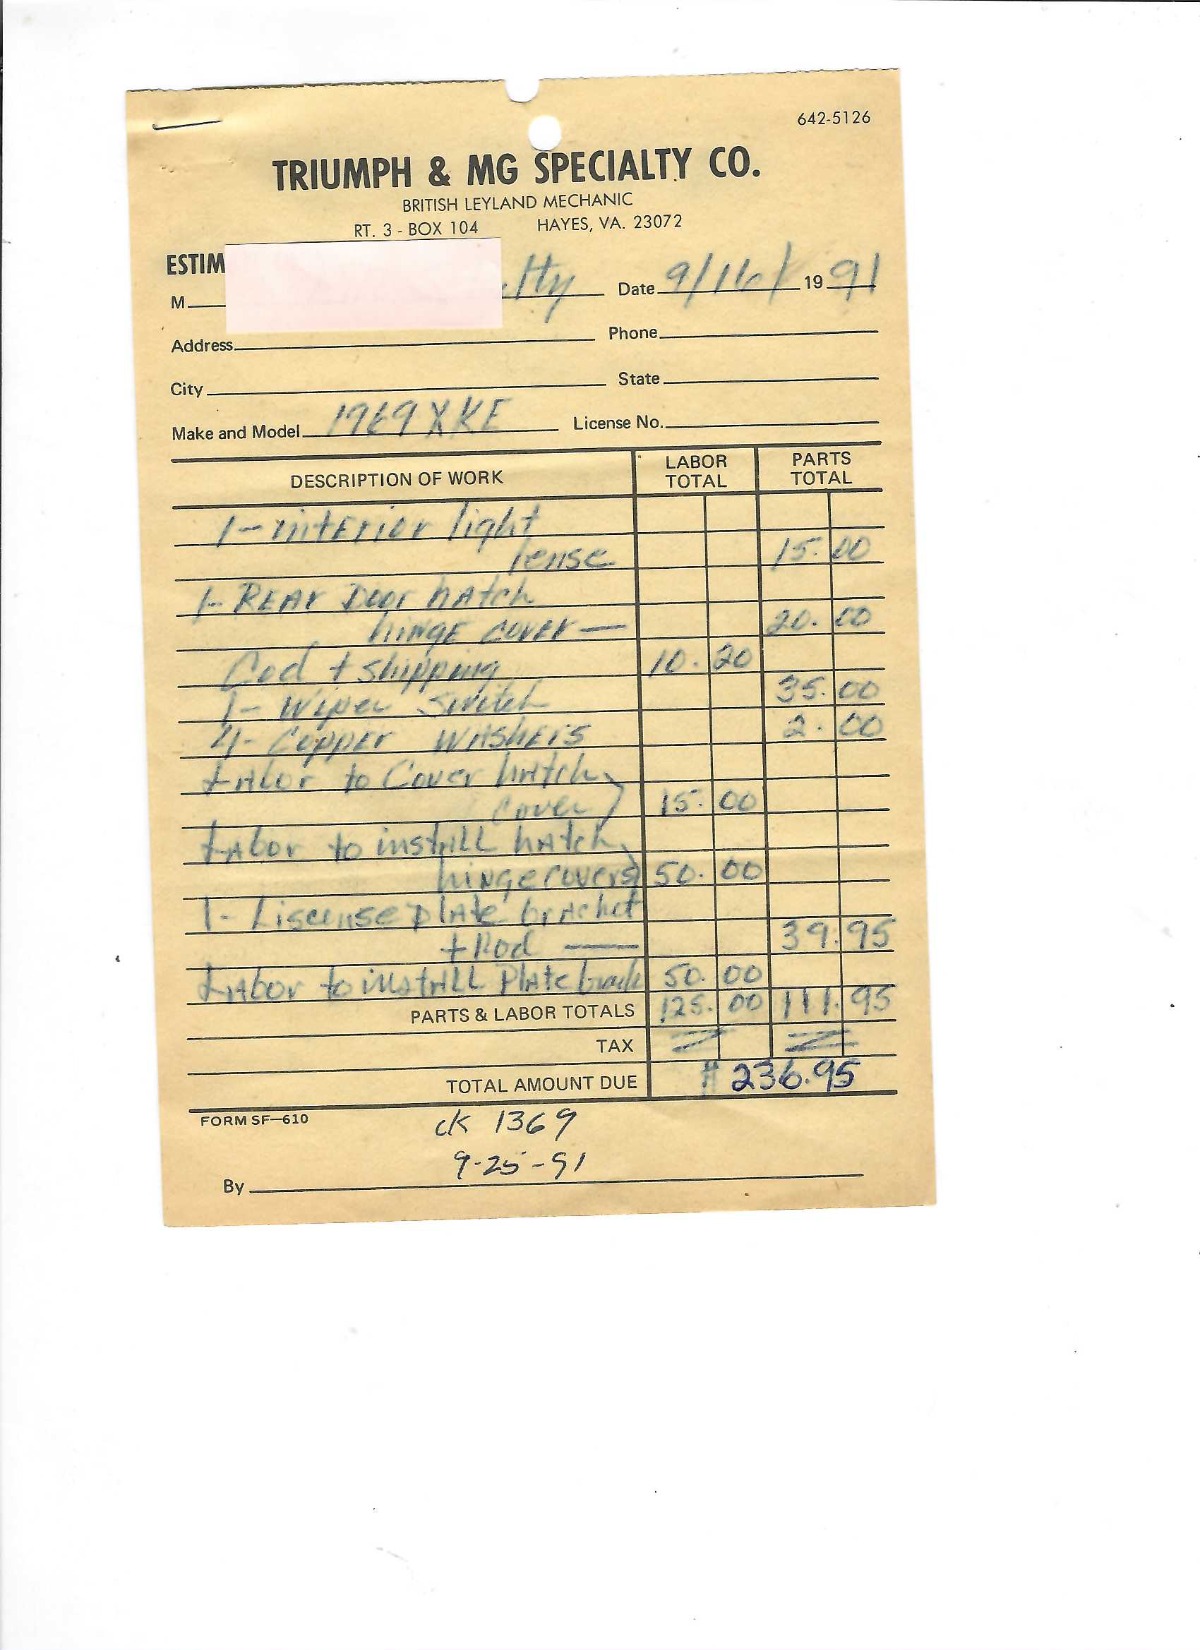 642-5126
TRIUMPH & MG SPECIALTY CO.
BRITISH LEYLAND MECHANIC
RT. 3 - BOX 104 HAYES, VA. 23072
ESTIM
M lty Date 9/16/ 19 91
Address Phone
City State
Make and Model 1969 XKE License No.
DESCRIPTION OF WORK LABOR TOTAL PARTS TOTAL
1- interior light
lense 15.00
1- REAr Door hAtch
hiNGE cover — 20.00
Cod + shipping 10.20
1- Wiper Switch 35.00
4- Copper WAshers 2.00
LAbor to Cover hAtch
cover 15.00
LAbor to instALL hAtch
hinge covers 50.00
1- Liscense plAte brAcket
+ Rod — 39.95
LAbor to instALL PlAte brack 50.00
PARTS & LABOR TOTALS 125.00 111.95
TAX
TOTAL AMOUNT DUE # 236.95
FORM SF-610
ck 1369
9-25-91
By